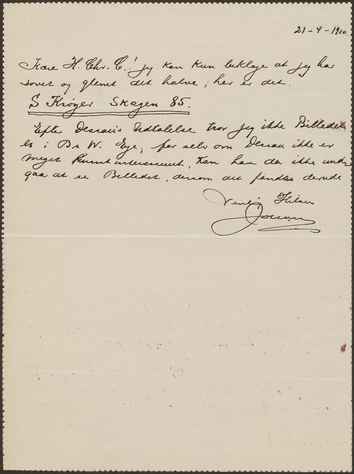 21-4-19
Kære H. Chr. C.! jeg kan kun beklage at jeg har
sovet og glemt det halve; her er det.
S Krøyer Skagen 85.
Efter Udtalelse tror jeg ikke Billedet
es i Br W. Eje, for selv om ikke er
meget Kunstinteresseret, kan han da ikke
gaa at se Billedet, dersom det fandtes derude
Venlig Hilsen